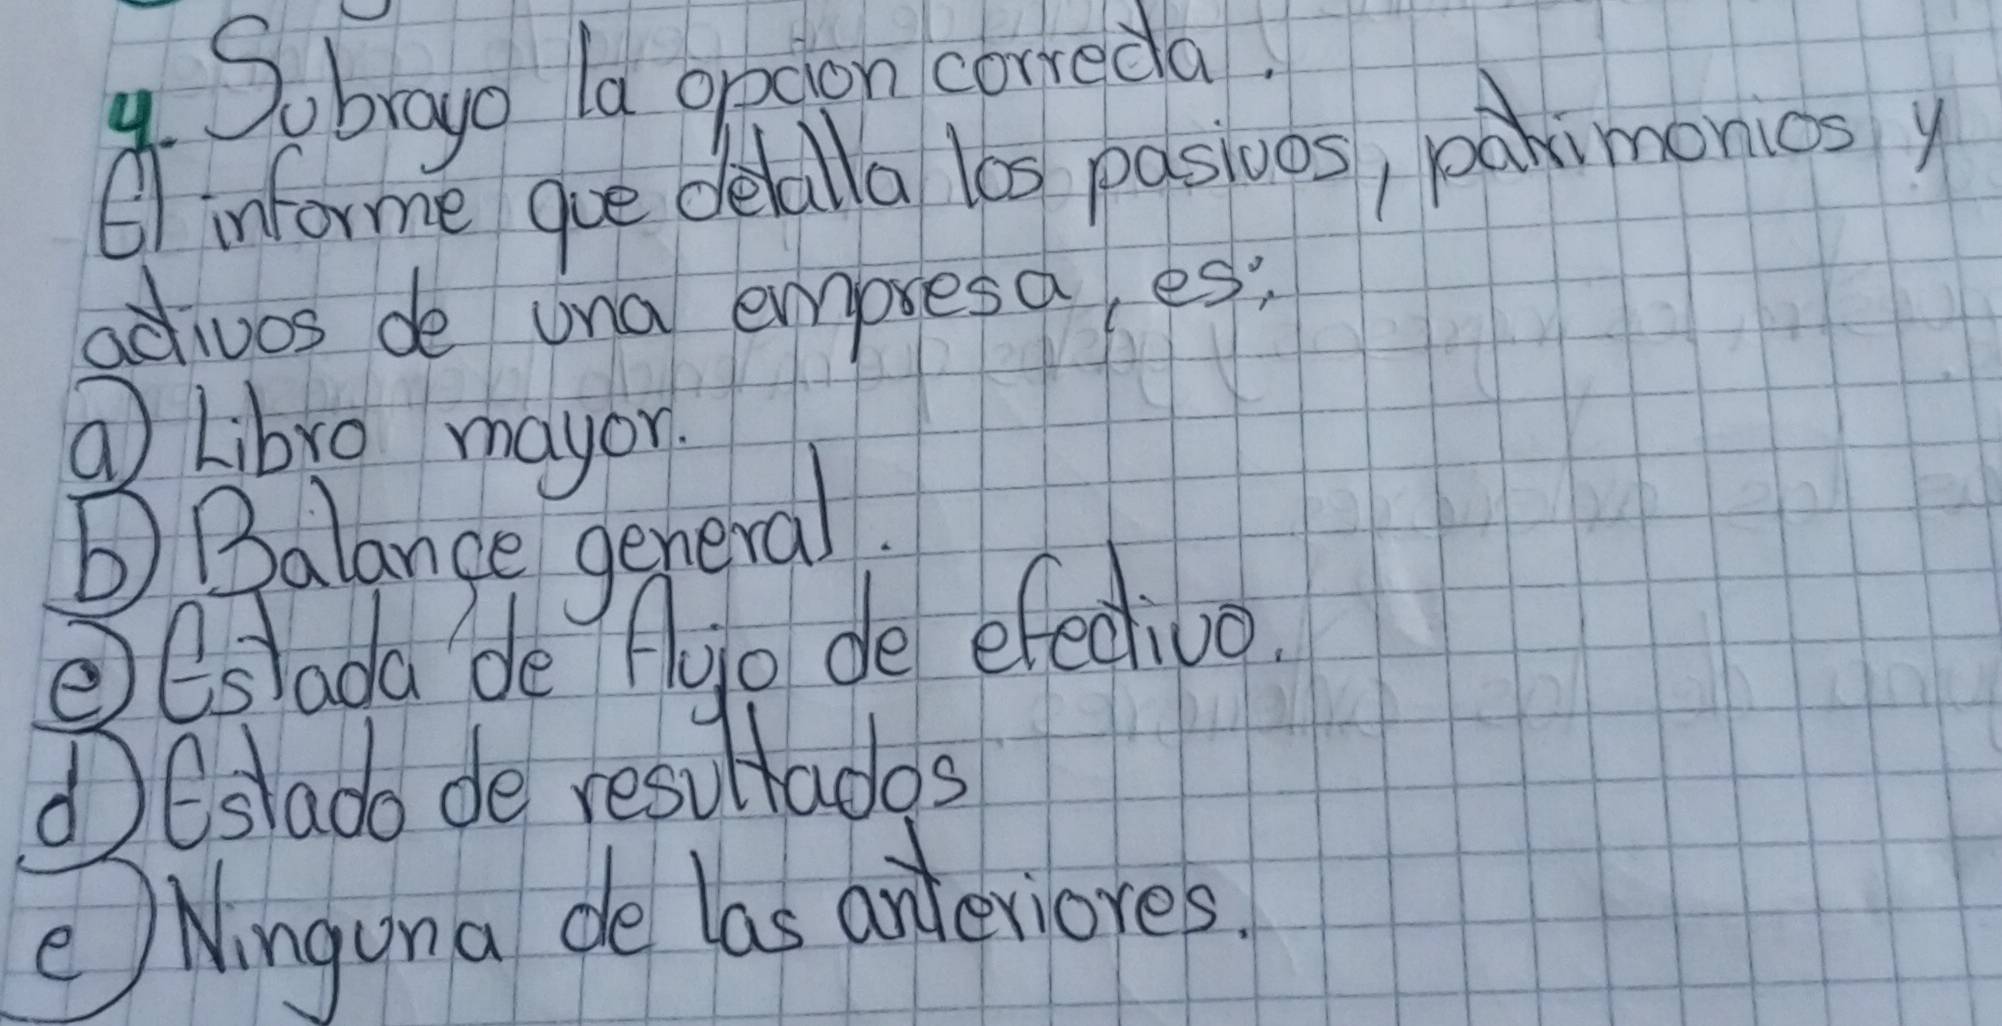 4. Subrayo la opción correcta.
El informe que detalla los pasivos, patrimonios y
activos de una empresa, es:
a) Libro mayor.
b) Balance general.
e) Estada de flujo de efectivo.
d) Estado de resultados
e) Ninguna de las anteriores.